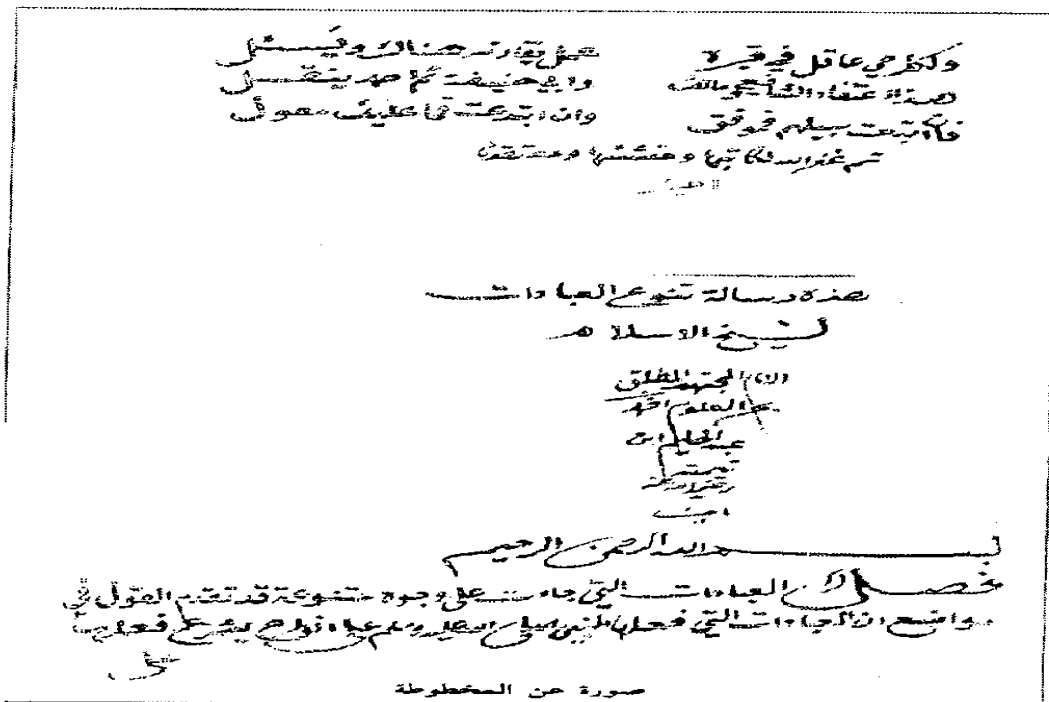 ولكل حي عاقل في قبره عمل يقارنه هناك ويسئل
هذا اعتقاد الشافعي ومالك وابي حنيفة ثم احمد ينقل
فان اتبعت سبيلهم فموفق وان ابتدعت فما عليك معول
تم غفر الله لكاتبها ومنشئها
امين
هذه رسالة تنوع العبادات
لشيخ الاسلام
المجتهد المطلق
العلوم احمد
عبد الحليم ابن
تيمية
رضي الله عنه
امين
بسم الله الرحمن الرحيم
فصل في العبادات التي جاءت على وجوه متنوعة قد تقدم القول في
مواضع ان العبادات التي فعلها النبي صلى الله عليه وسلم على انواع يشرع فعلها
على
صورة عن المخطوطة